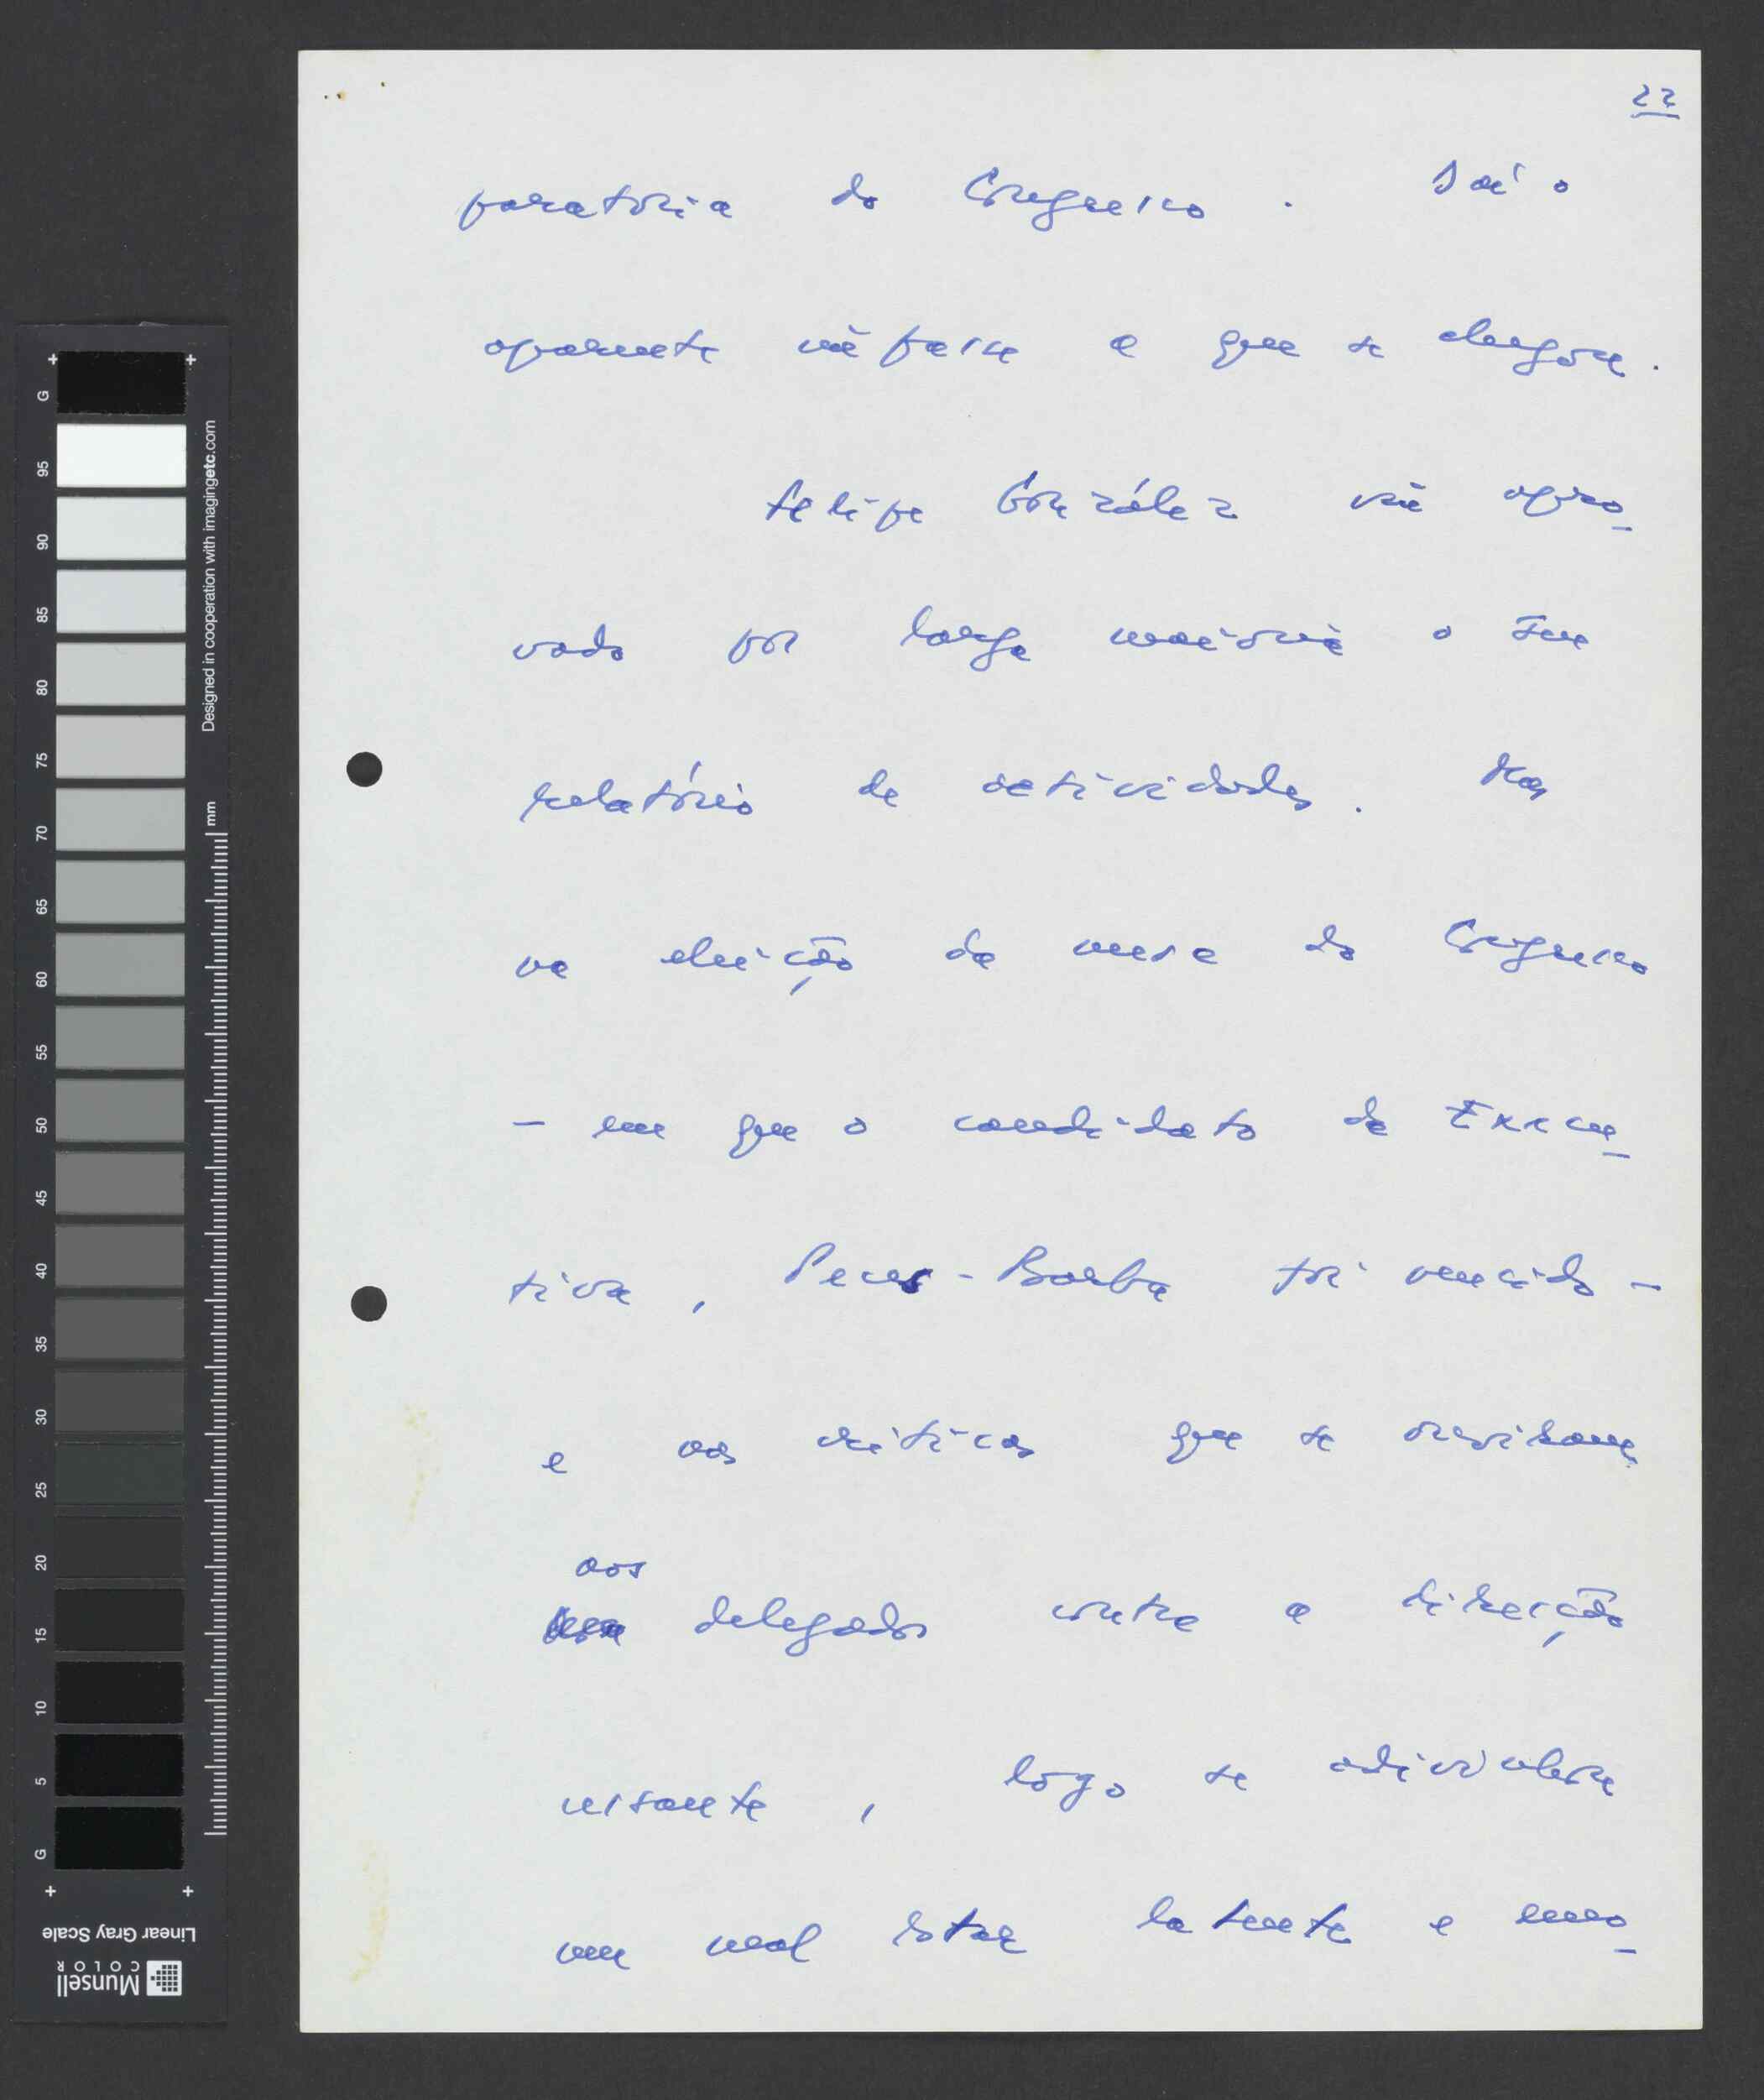 22
paratória do Congresso. Daí o
aparente impasse a que se chegou.
Felipe González viu apro-
vado por larga maioria o seu
relatório de actividades. Mas
na eleição da mesa do Congresso
- em que o candidato da Execu-
tiva, Peces-Barba foi vencido -
e nas críticas que se ouviram
aos
delegados contra a direcção
cessante, logo se adivinhou
um mal estar latente e uma
G
95
90
85
80
75
70
65
60
55
50
45
40
35
30
25
20
15
10
5
G
Designed in cooperation with imagingetc.com
mm
Linear Gray Scale
Munsell
COLOR